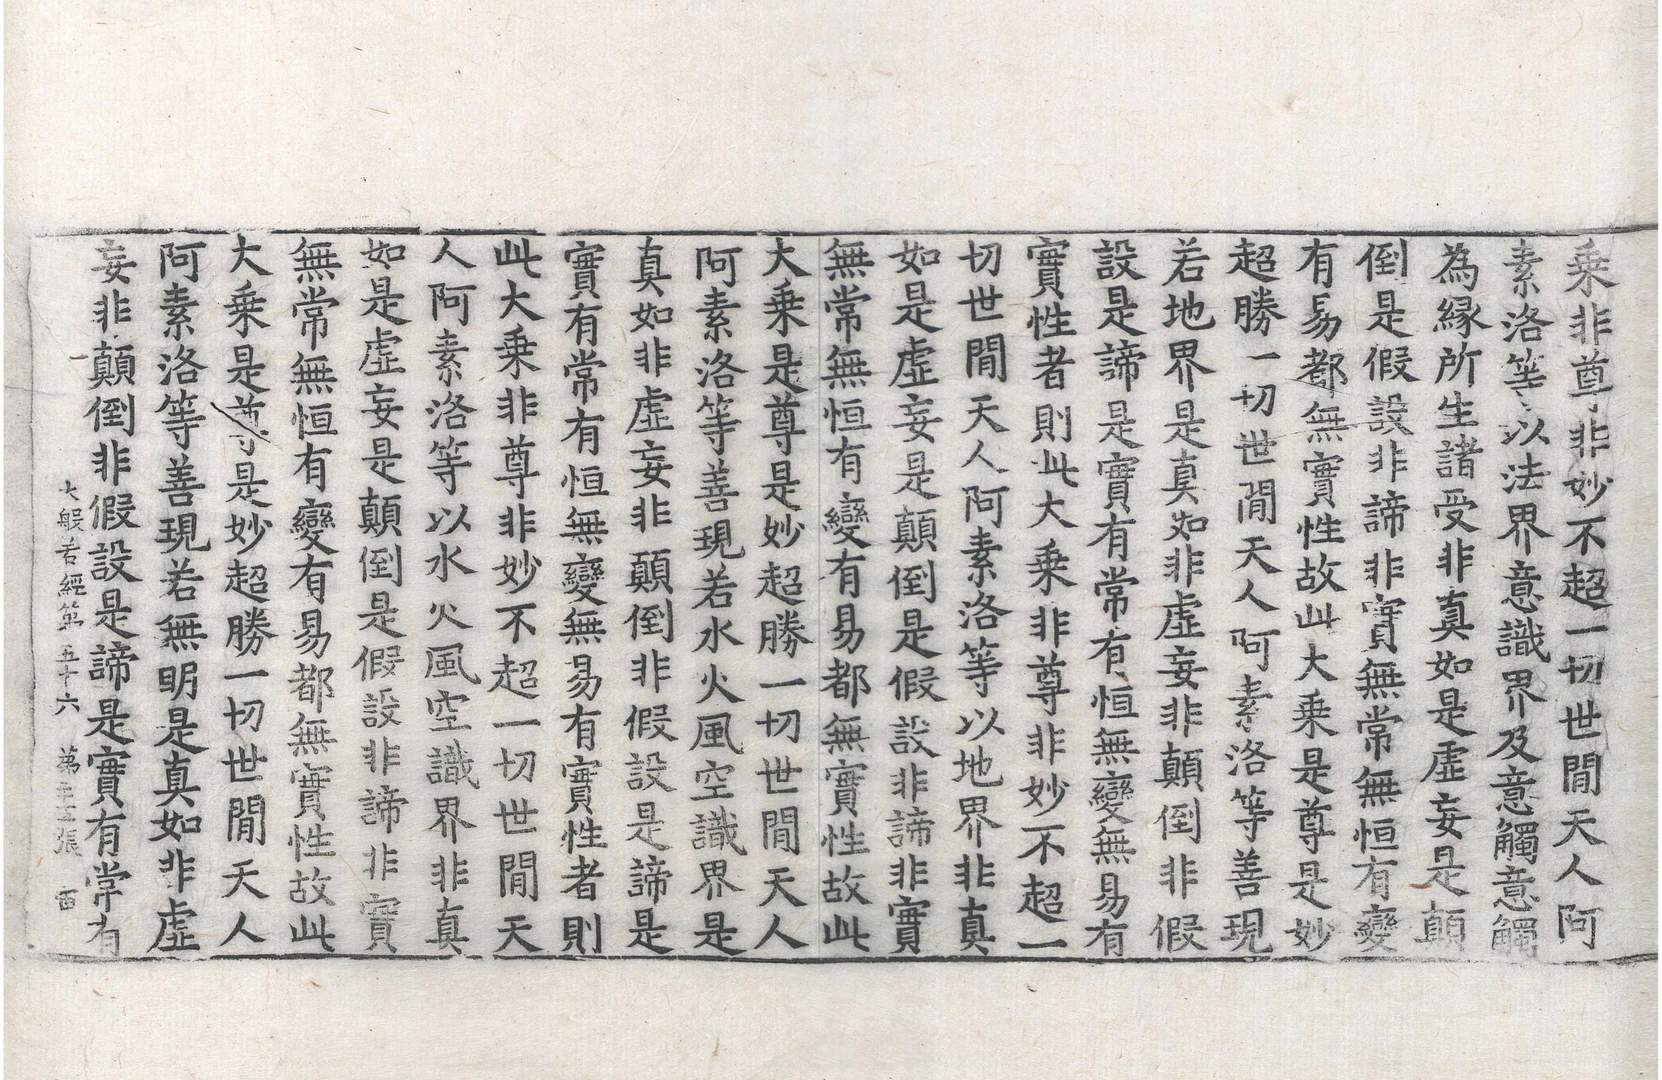 乗非尊非妙不超一切世閒天人阿
素洛等以法界意識界及意觸意觸
為縁所生諸受非真如是虛妄是顛
倒是假設非諦非實無常無恒有變
有易都無實性故此大乗是尊是妙
超勝一切世閒天人阿素洛等善現
若地界是真如非虛妄非顛倒非假
設是諦是實有常有恒無變無易有
實性者則此大乗非尊非妙不超一
切世閒天人阿素洛等以地界非真
如是虛妄是顛倒是假設非諦非實
無常無恒有變有易都無實性故此
大乗是尊是妙超勝一切世閒天人
阿素洛等善現若水火風空識界是
真如非虛妄非顛倒非假設是諦是
實有常有恒無變無易有實性者則
此大乗非尊非妙不超一切世閒天
人阿素洛等以水火風空識界非真
如是虛妄是顛倒是假設非諦非實
無常無恒有變有易都無實性故此
大乗是尊是妙超勝一切世閒天人
阿素洛等善現若無明是真如非虛
妄非顛倒非假設是諦是實有常有
大般若經第五十六 第張